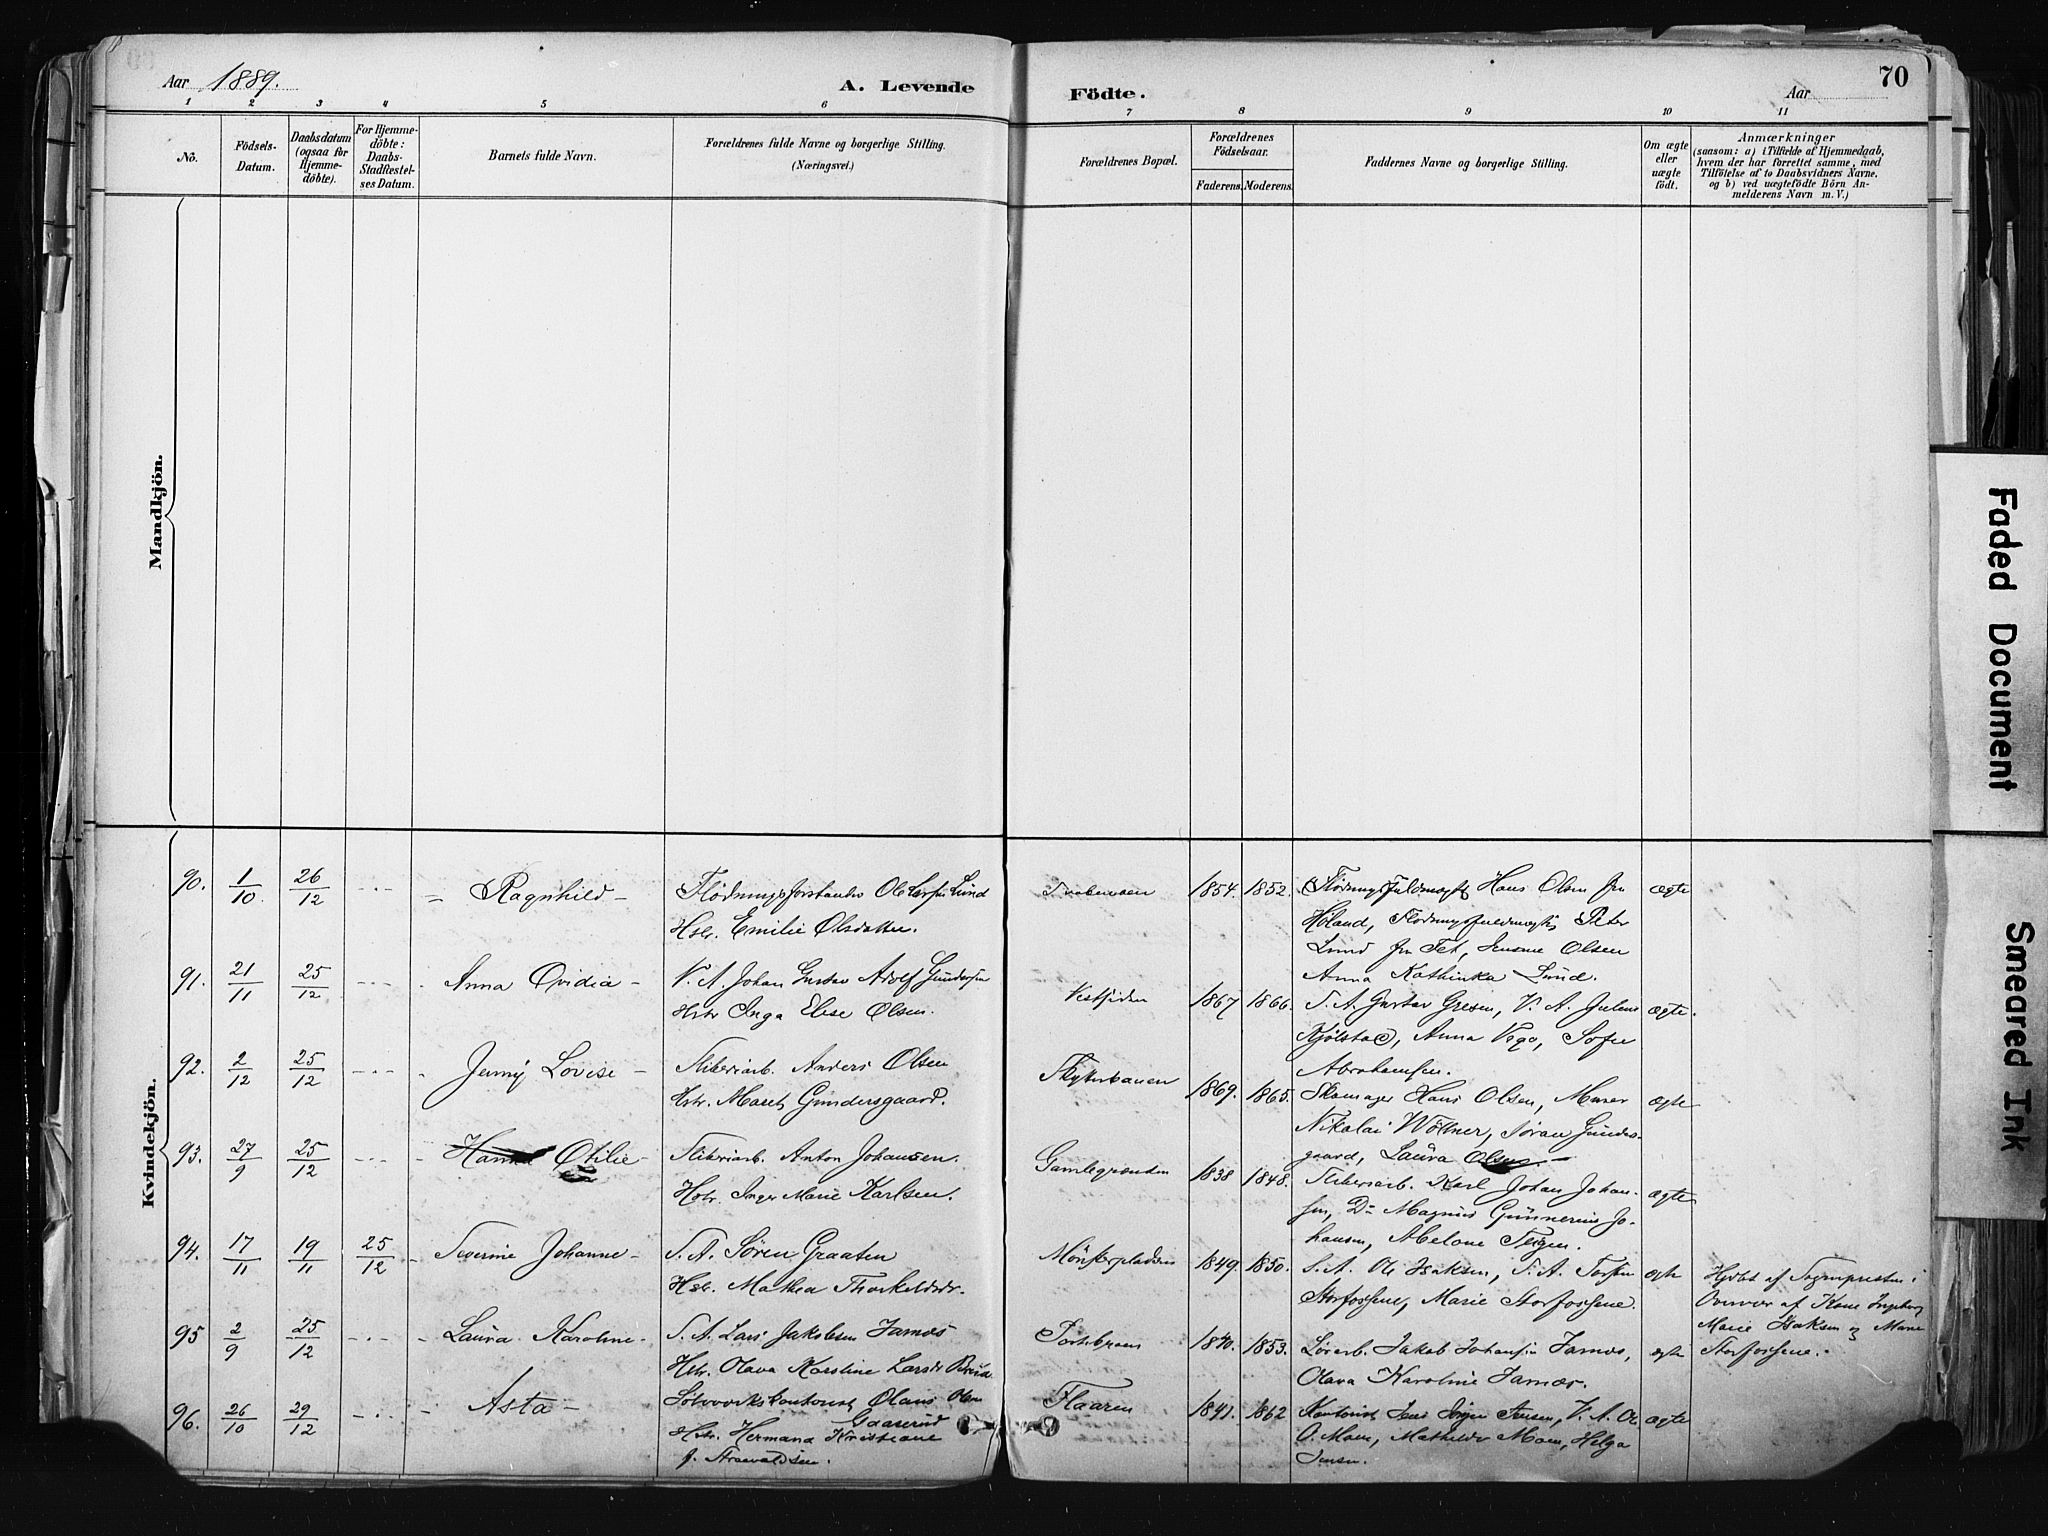 Aar 1889.
A. Levende
Födte.
Aar
70
1 2 3 4 5 6 7 8 9 10 11
No.
Födsels-
Datum.
Daabsdatum
(ogsaa for
Hjemme-
döbte).
For Hjemme-
döbte:
Daabs-
Stadfæstel-
ses Datum.
Barnets fulde Navn.
Forældrenes fulde Navne og borgerlige Stilling.
(Næringsvei.)
Forældrenes Bopæl.
Forældrenes
Födselsaar.
Faderens. Moderens.
Faddernes Navne og borgerlige Stilling.
Om ægte
eller
uægte
födt.
Anmærkninger
(saasom: a) i Tilfælde af Hjemmedaab,
hvem der har forrettet samme, med
Tilföielse af to Daabsvidners Navne,
og b) ved uægtefödte Börn An-
melderens Navn m.V.)
Mandkjön.
Kvindekjön.
90. 1/10. 26/12 Ragnhild
Ole Larsen Lund
Hstr. Emilie Olsdatter.
1854. 1852.
Hans Olsen fra
Höland, Peter
Lund fra Fet, Olsen
Anna Kathinka Lund.
ægte
91. 21/11 25/12 Anna Ovidia
V. A. Johan Gustav Adolf Gundersen
Hstr Inga Elise Olsen.
Vestsiden
1867 1866.
S. A. Gustav Gresen, V. A. Julius
Kjölstad, Anna Vego, Sofie
Abrahamsen.
ægte.
92. 2/12 25/12 Jenny Lovise
Sliberiarb. Anders Olsen
Hstr. Maret Gundersgaard.
Skytterbanen
1869. 1865.
Skomager Hans Olsen, Murer
Nikolai Wöllner, Søren Gunders-
gaard, Laura Olsen.
ægte
93. 27/9 25/12 Hanna Otilie
Sliberiarb. Anton Johansen.
Hstr. Inger Marie Karlsen.
Gamlegrænden
1838 1848.
Sliberiarb. Karl Johan Johan-
sen, Do Magnus Gunnerius Jo-
hansen,
ægte
94. 17/11 19/11 25/12 Severine Johanne
S. A. Sören Graaten
Hstr. Mathea Thorkeldsdr.
Mönsterpladsen
1849. 1850.
S. A. Ole Isaksen, S. A. Torsten
Storfossene, Marie Storfossene.
ægte
Hjdbt af Sognepresten i
Overvær af Kone Ingeborg
Marie Isaksen og Marie
Storfossene.
95 2/9 25/12 Laura Karoline
S. A. Lars Jakobsen Jarnæs
Hstr. Olava Karoline Larsdr
1840. 1853.
Jakob Johansen Jarnæs,
Olava Karoline Jarnæs.
ægte
96. 26/10 29/12 Asta
Olaus Olsen
Gaaserud
Hstr. Hermana Kristiane
f.
Flaaren
1841. 1862
Kontorist Jens Jörgen Jensen, V. A. Ole
O. Moen, Mathilde Moen, Helga
Jensen.
ægte
Faded Document
Smeared Ink